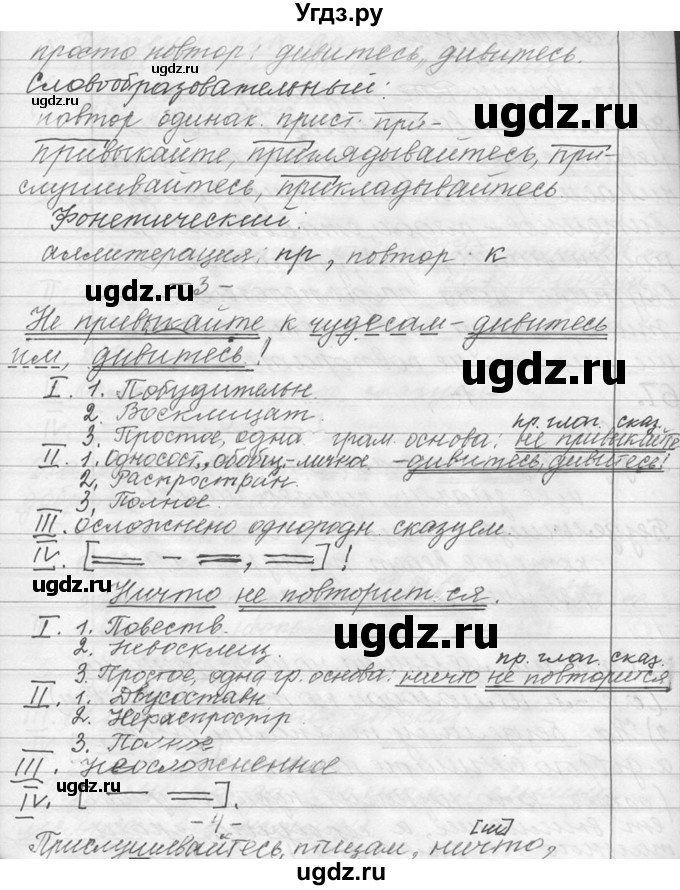 Угдз.ру
просто повтор: дивитесь, дивитесь.
Словообразовательный:
повтор одинак. прист. при-
привыкайте, приглядывайтесь, при-
слушивайтесь, прикладывайтесь
Фонетический:
аллитерация: пр, повтор к
- 3 -
Не привыкайте к чудесам - дивитесь
им, дивитесь!
I. 1. Побудительн.
2. Восклицат.
пр. глаг. сказ.
3. Простое, одна грам. основа: не привыкайте
II. 1. Односост., обобщ.-личное - дивитесь, дивитесь!
2. Распростран.
3. Полное.
III. осложнено однородн. сказуем.
IV. [== - ==, ==]!
Ничто не повторит ся.
I. 1. Повеств.
2. Невосклиц.
пр. глаг. сказ.
3. Простое, одна гр. основа: ничто не повторится
II. 1. Двусоставн.
2. Нераспростр.
3. Полное
III. неосложненное
IV. [— ==].
- 4 -
[ш]
Прислушивайтесь, птицам, ничто,
ugdz.ru
ugdz.ru
ugdz.ru
ugdz.ru
ugdz.ru
ugdz.ru
ugdz.ru
ugdz.ru
ugdz.ru
ugdz.ru
ugdz.ru
Угдз.ру